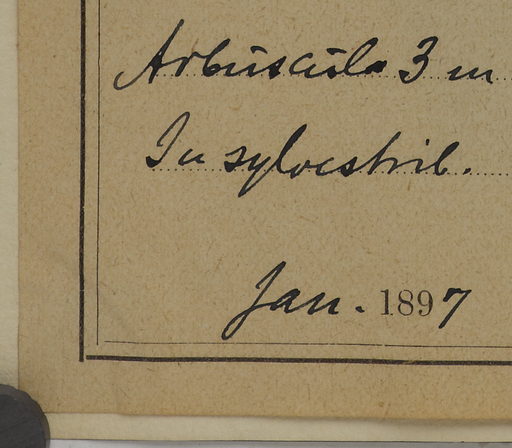 Arbuscula 3 m
In sylvestrib.
Jan. 1897